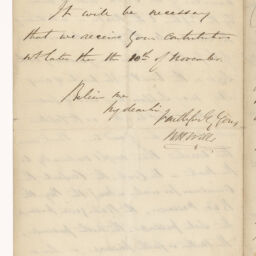 It will be necessary
that we receive your contribution
not later than the 10th of November.
Believe me
My dear Sir
faithfully Yours
W H Wills